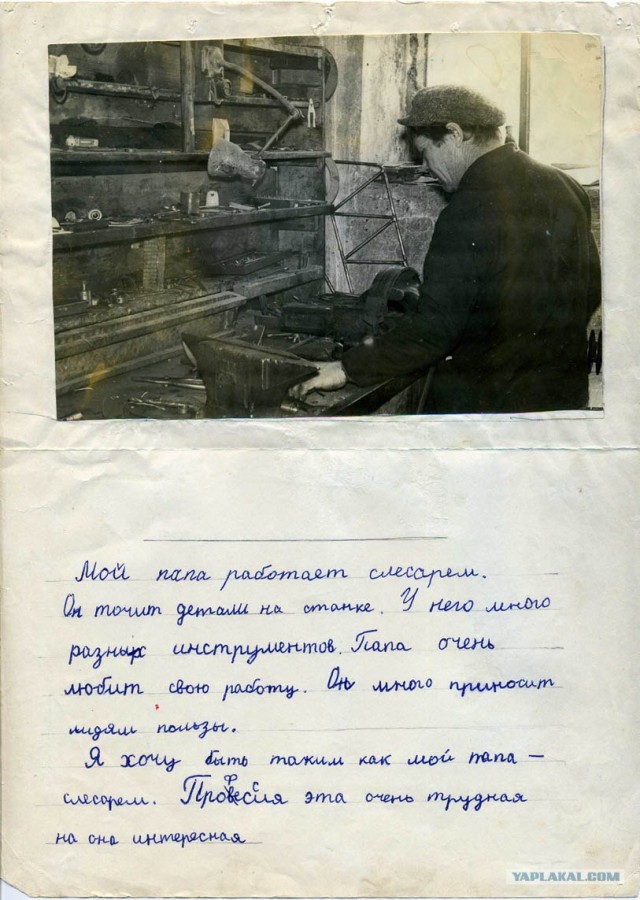 Мой папа работает слесарем.
Он точит детали на станке. У него много
разных инструментов. Папа очень
любит свою работу. Он много приносит
людям пользы.
Я хочу быть таким как мой папа —
слесарем. Профессия эта очень трудная
на она интересная
YAPLAKAL.COM